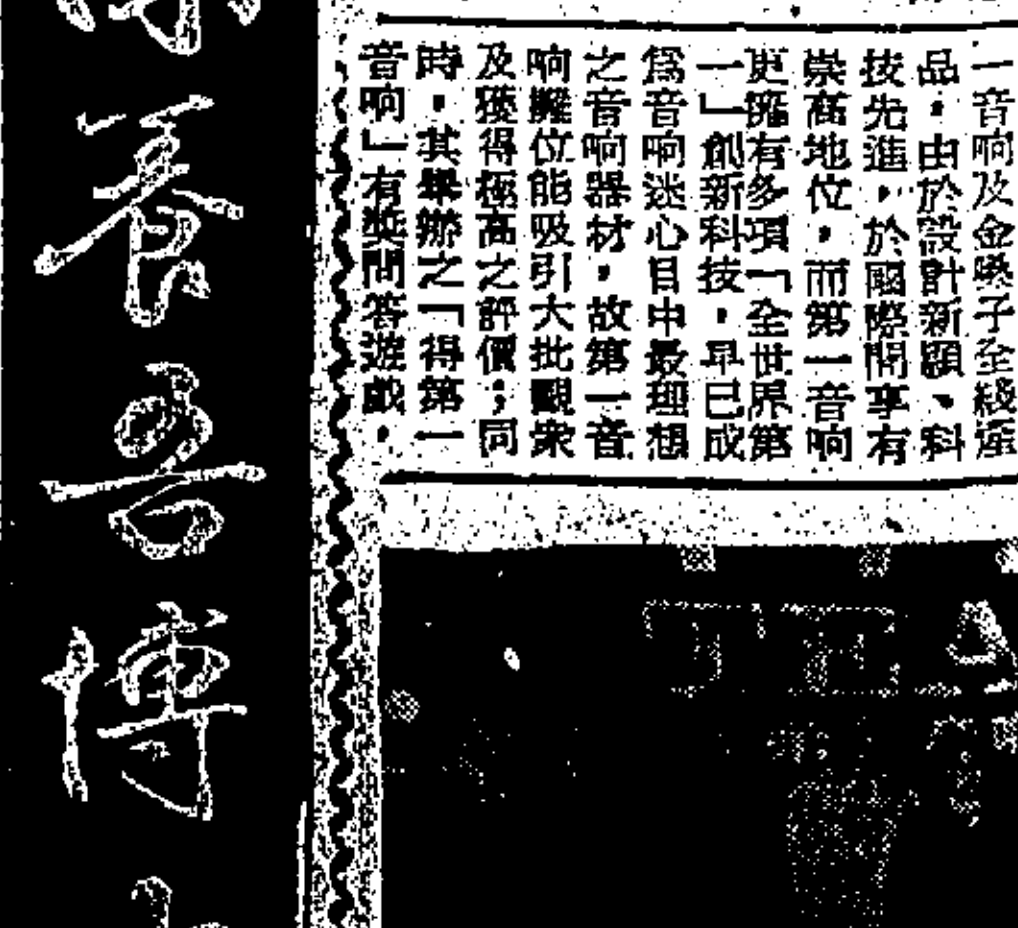 一音响及金嗓子全綫產
品，由於設計新穎、科
技先進，於國際間享有
崇高地位，而第一音响
更擁有多項「全世界第
一」創新科技，早已成
爲音响迷心目中最理想
之音响器材，故第一音
响攤位能吸引大批觀衆
及獲得極高之評價；同
時，其舉辦之「得第一
音响」有獎問答遊戲，